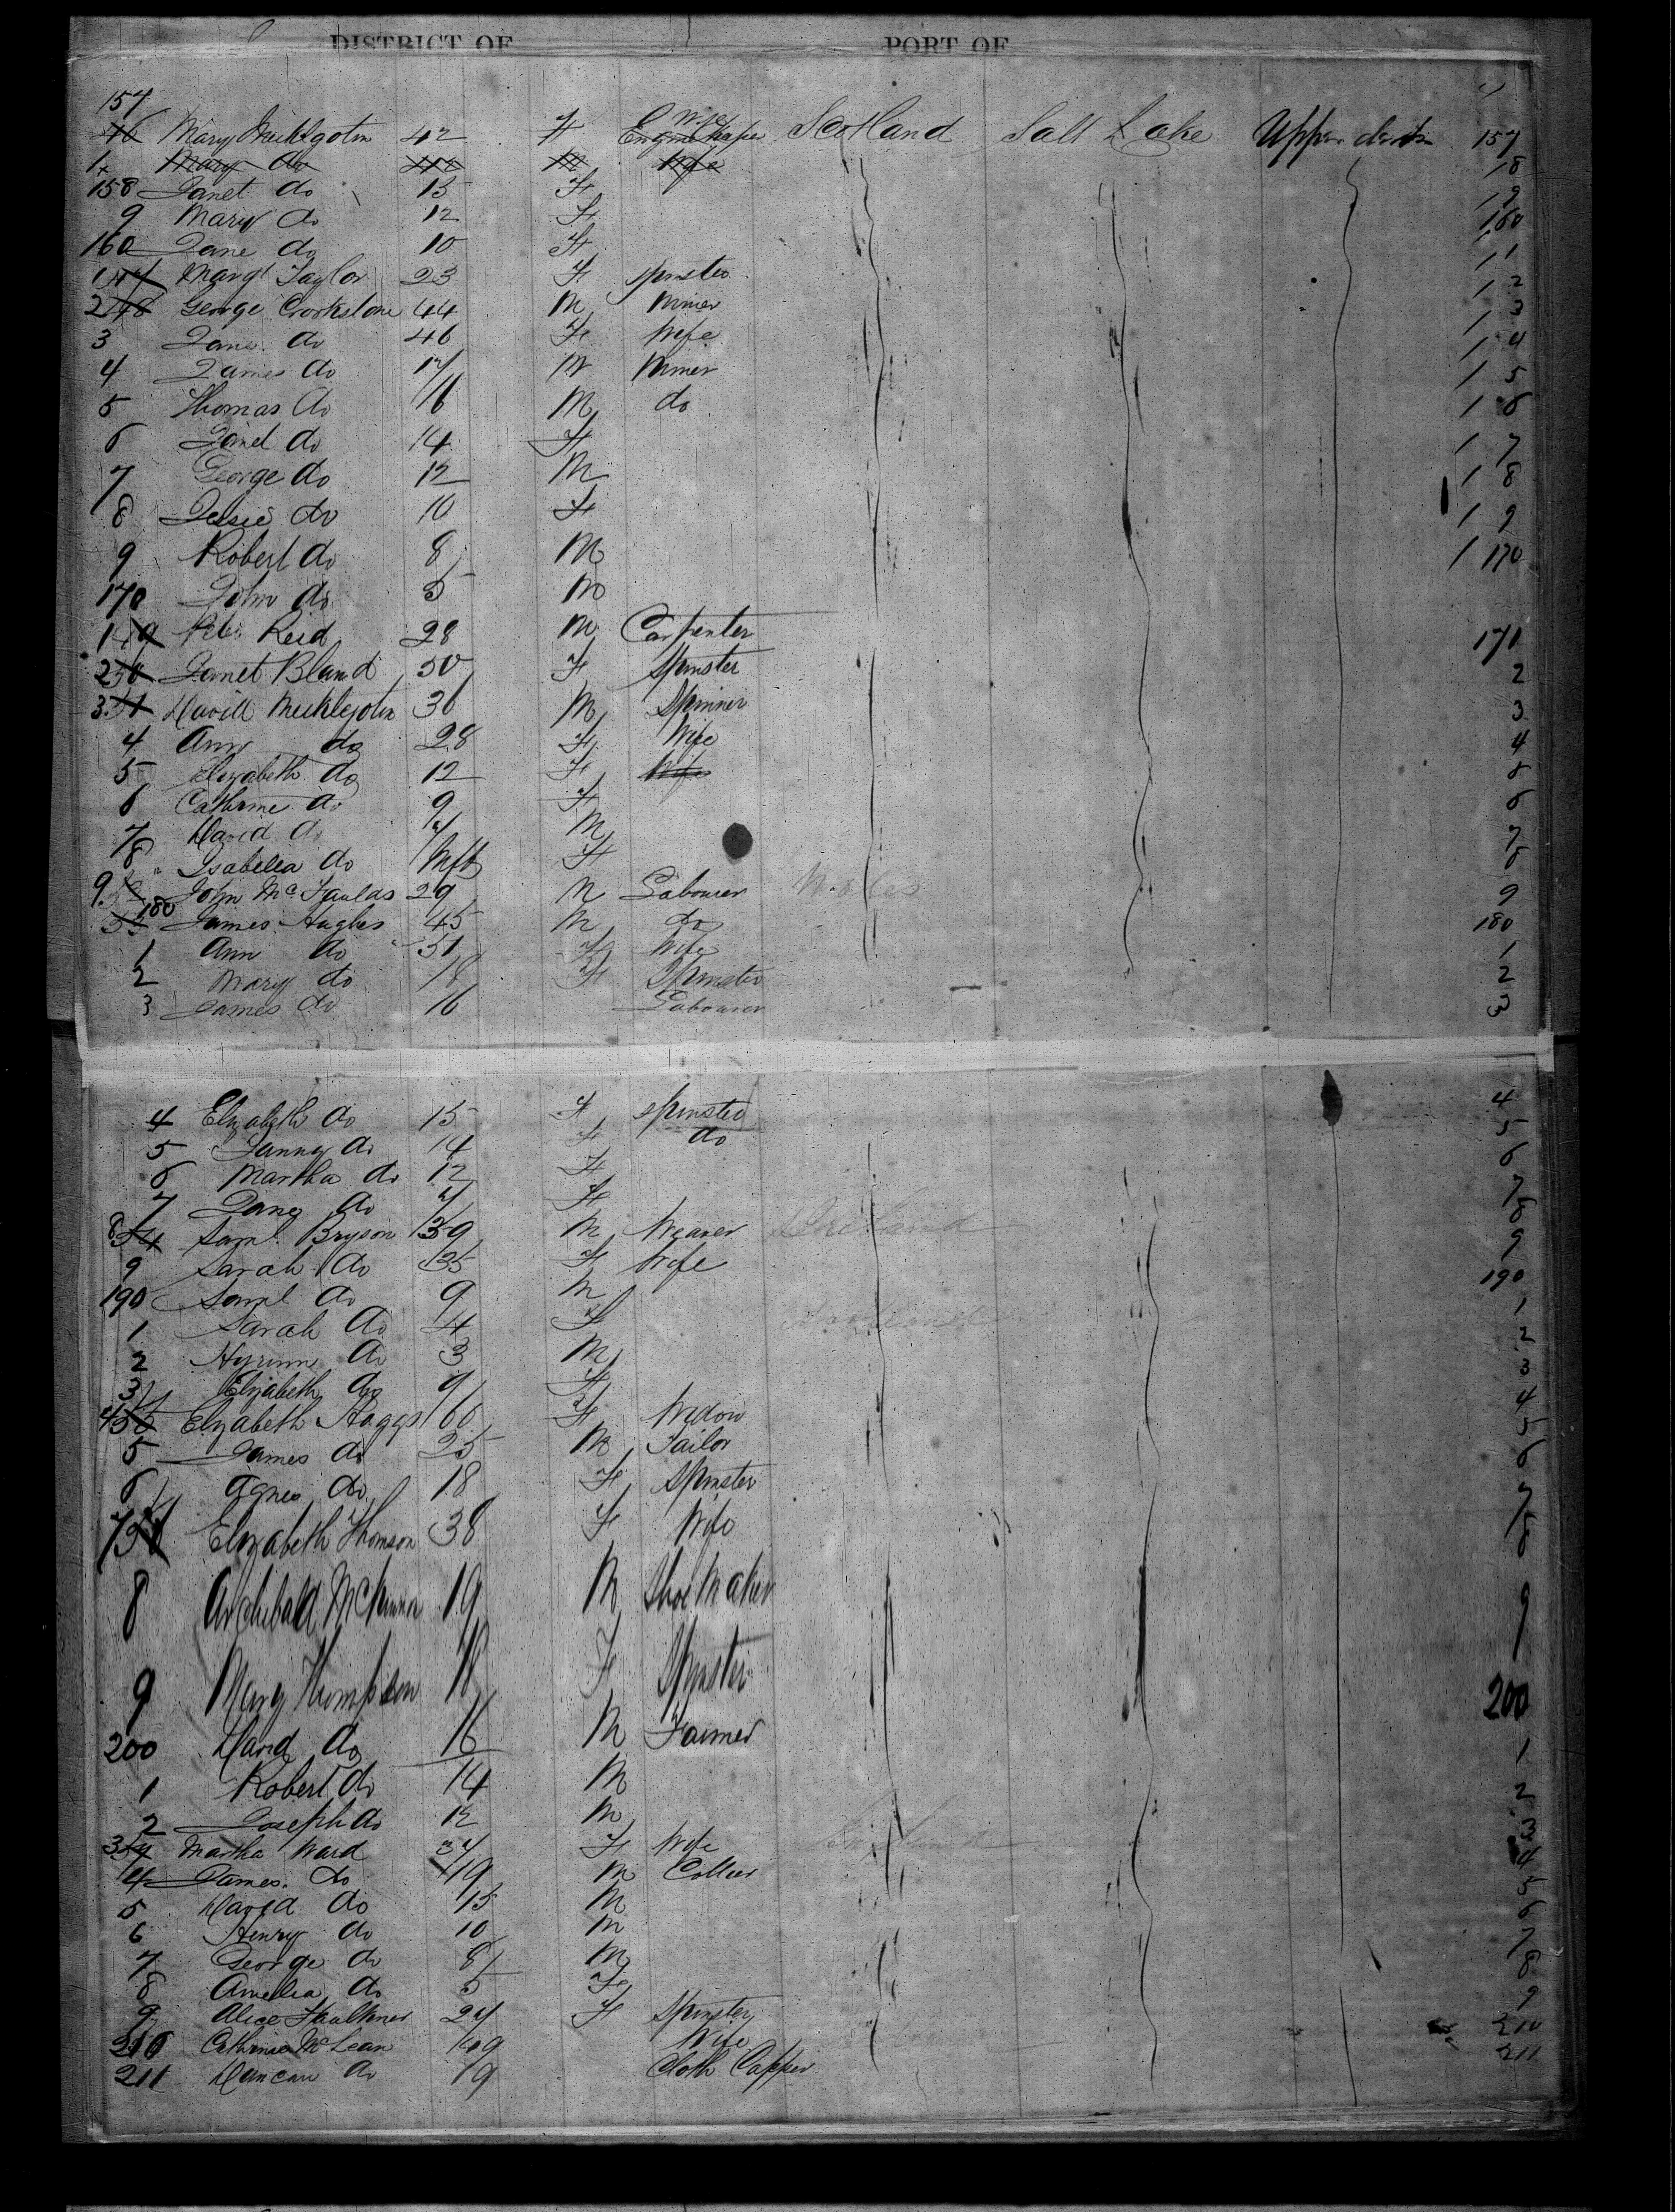 DISTRICT OF PORT OF
157
46 Mary Muklejohn 42 F Wife Engine Keeper Scotland Salt Lake Upper deck 157
1 Mary do 42 M Wife 18
158 Janet do 15 F 19
9 Mary do 12 F 160
160 Jane do 10 F 1 1
147 Margt Taylor 23 F Spinster 1 2
2 48 George Crookstone 44 M Miner 1 3
3 Jane do 46 F Wife 1 4
4 James do 17 M Miner 1 5
5 Thomas do 16 M do 1 6
6 Janet do 14 F 1 7
7 George do 12 M 1 8
8 Jessie do 10 F 1 9
9 Robert do 8 M 1 170
170 John do 5 M
1 49 Peter Reid 28 M Carpenter 171
2 50 Janet Bland 50 F Spinster 2
3 51 David Muklejohn 36 M Spinner 3
4 Ann do 28 F Wife 4
5 Elizabeth do 12 F Wife 5
6 Cathrine do 9 F 6
7 David do 7 M 7
8 Isabella do Inft F 8
9 52 John McFaulds 29 M Labourer Wales 9
180 53 James Hughes 45 M do 180
1 Ann do 51 F Wife 1
2 Mary do 18 F Spinster 2
3 James do 16 Labourer 3
4 Elizabeth do 15 F Spinster 4
5 Fanny do 14 F do 5
6 Martha do 12 F 6
7 Jane do 7 F 7
8 54 Saml. Bryson 39 M Weaver Ireland 8
9 Sarah do 35 F Wife 9
190 Saml do 9 M 190
1 Sarah do 4 F Scotland 1
2 Hyrum do 3 M 2
3 Elizabeth do 9 F 3
4 55 Elizabeth Haggs 60 F Widow 4
5 James do 25 M Tailor 5
6 Agnes do 18 F Spinster 6
7 Elizabeth Thomson 38 F Wife 7
8
8 Archibald McKinnon 19 M Shoe Maker 9
9 Mary Thompson 18 F Spinster 200
200 David do 16 M Farmer 1
1 Robert do 14 M 2
2 Joseph do 12 M
3 Martha Ward 37 F Wife 3
4 James do 19 M Collier 4
5 David do 15 M 5
6 Henry do 10 M 6
7 George do 8 M 7
8 Amelia do 5 F 8
9 Alice Faulkner 24 F Spinster 9
210 Cathrine McLean 49 Wife 210
211 Duncan do 19 Cloth Lapper 211